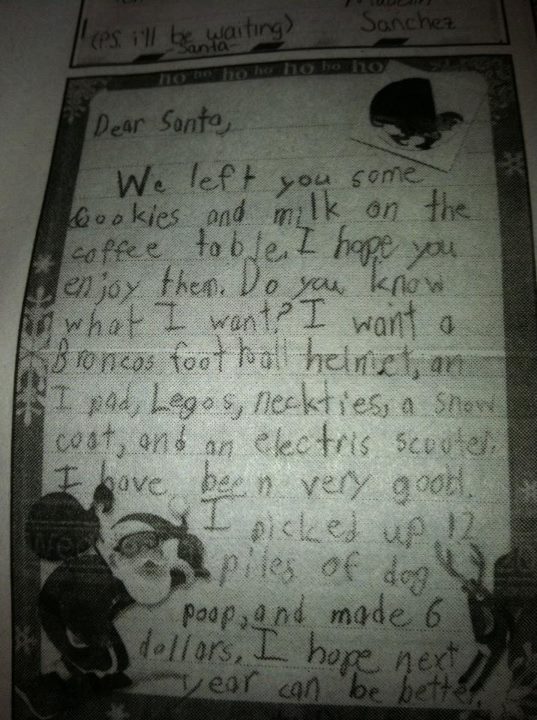 (PS. i'll be waiting)
Santa
Sanchez
ho ho ho ho ho ho ho
Dear Santa,
We left you some
Cookies and milk on the
coffee table. I hope you
enjoy them. Do you know
what I want? I want a
Broncos football helmet, an
I pad, Legos, neckties, a snow
coat, and an electris scooter.
I have been very good.
I picked up 12
piles of dog
poop, and made 6
dollars. I hope next
year can be better.